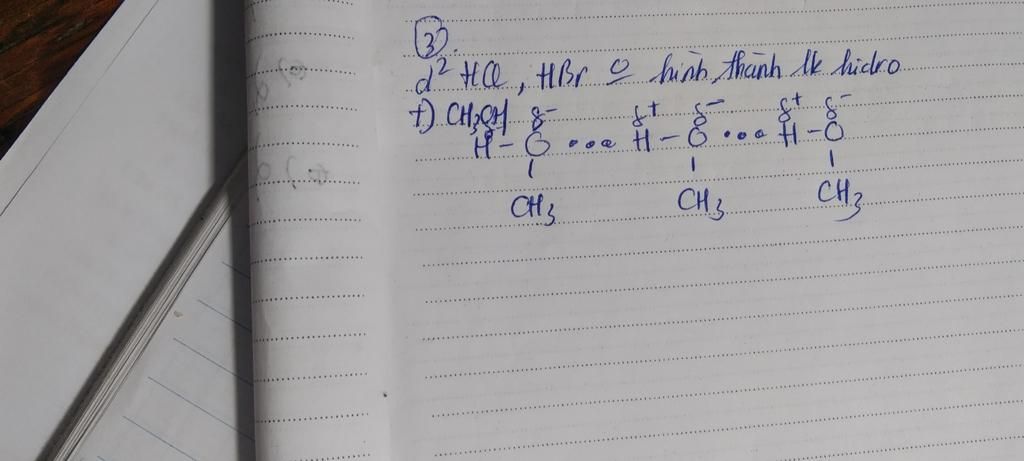 ③.
d² HCl, HBr O hình thành lk hidro
f) CH₃OH δ⁻ δ⁺ δ⁻ δ⁺ δ⁻
H – O ... H – O ... H – O
| | |
CH₃ CH₃ CH₃